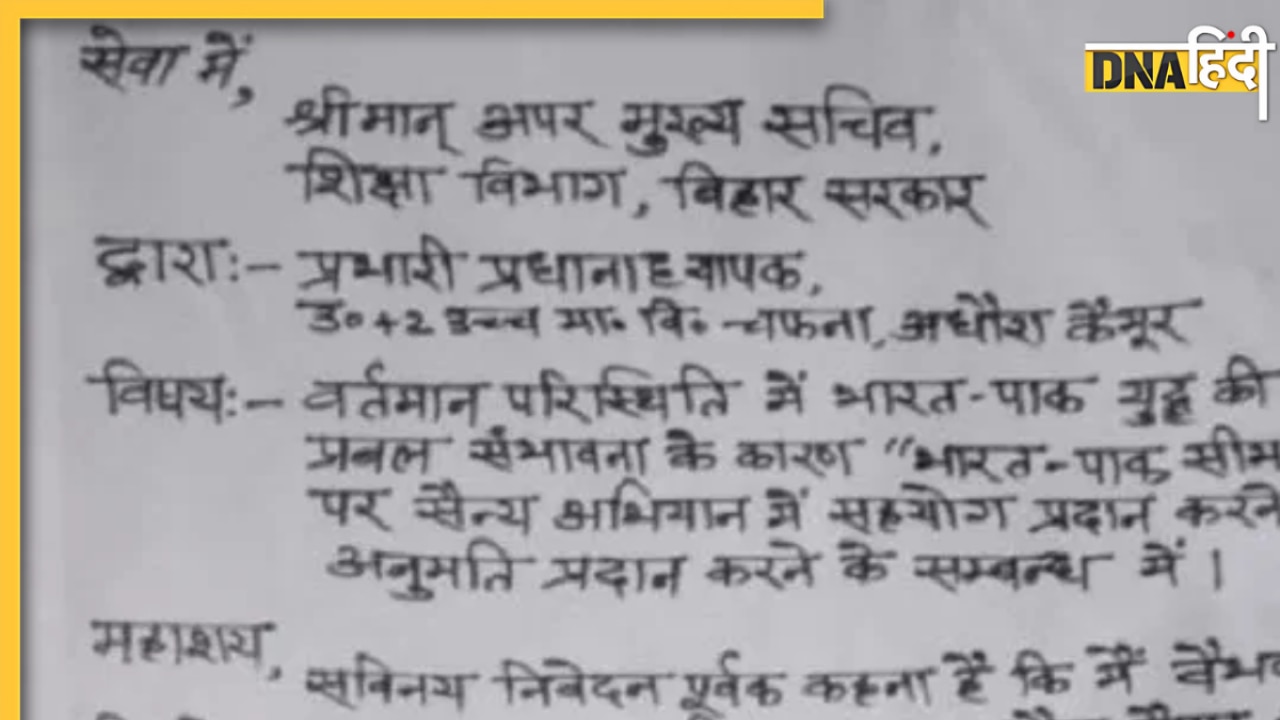 DNA हिंदी
सेवा में,
श्रीमान् अपर मुख्य सचिव,
शिक्षा विभाग, बिहार सरकार
द्वारा:- प्रभारी प्रधानाध्यापक,
उ० +2 उच्च मा० वि०
विषय:- वर्तमान परिस्थिति में भारत-पाक युद्ध की
प्रबल संभावना के कारण "भारत-पाक
पर सैन्य अभियान में सहयोग प्रदान करने
अनुमति प्रदान करने के सम्बन्ध में।
महाशय,
सविनय निवेदन पूर्वक कहना है कि मैं